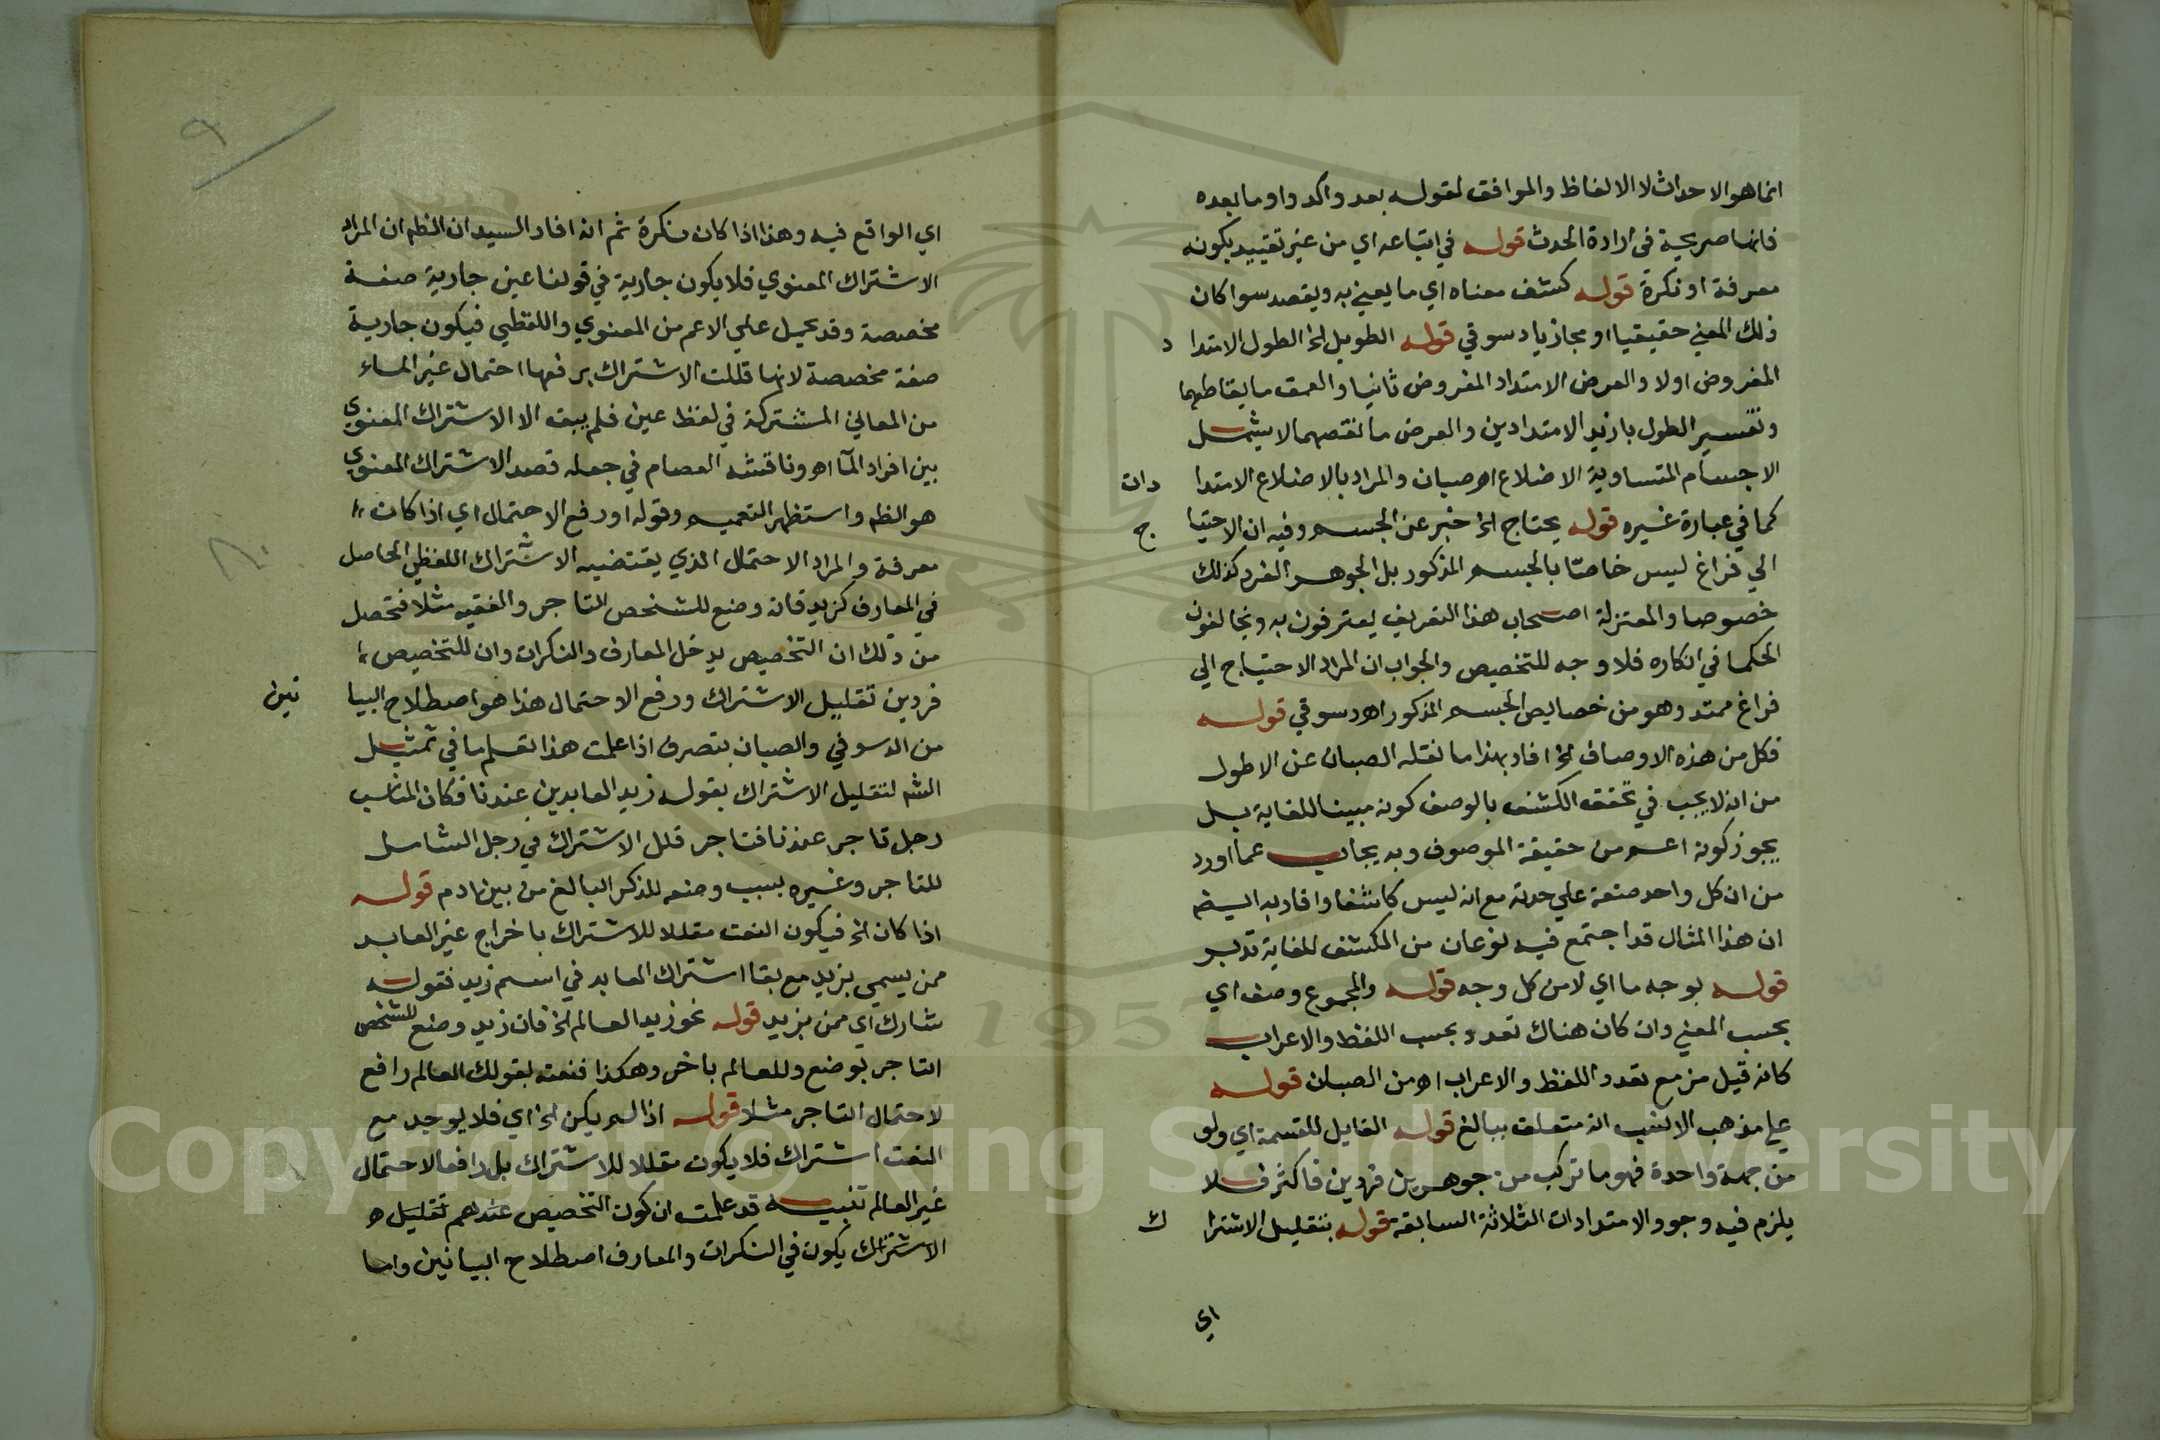 انما هو الاحداث لا الالفاظ والموافق لقوله بعد واكد واوما بعده
فانها صريحة في ارادة الحدث قوله في اتباعه اي من غير تقييد بكونه
معرفة او نكرة قوله كشف معناه اي ما يعني به ويقصد سوا كان
ذلك المعني حقيقيا او مجازيا دسوقي قوله الطويل الخ الطول الامتدا د
المفروض اولا والعرض الامتداد المفروض ثانيا والعمق ما يقاطعهما
وتفسير الطول بازيد الامتدادين والعرض ما نقصهما لا يشمل
الاجسام المتساوية الاضلاع اه صبان والمراد بالاضلاع الامتدا دات
كما في عبارة غيره قوله يحتاج الخ خبر عن الجسم وفيه ان الاحتيا ج
الي فراغ ليس خاصا بالجسم المذكور بل الجوهر الفرد كذلك
خصوصا والمعتزلة اصحاب هذا التعريف يعترفون به ويخالفون
الحكما في انكاره فلا وجه للتخصيص والجواب ان المراد الاحتياج الي
فراغ ممتد وهو من خصايص الجسم المذكور اه دسوقي قوله
فكل من هذه الاوصاف الخ افاد بهذا ما نقله الصبان عن الاطول
من انه لا يجب في تحقق الكشف بالوصف كونه مبينا للغاية بل
يجوز كونه اعم من حقيقة الموصوف وبه يجاب عما اورد
من ان كل واحد صفة علي حدته مع انه ليس كاشفا وافاد به ايضم
ان هذا المثال قد اجتمع فيه نوعان من الكشف للغاية تدبر
قوله بوجه ما اي لا من كل وجه قوله والمجموع وصف اي
بحسب المعني وان كان هناك تعدد بحسب اللفظ والاعراب
كانه قيل مز مع تعدد اللفظ والاعراب اه من الصبان قوله
علي مذهب الانسب انه متعلق ببالغ قوله القايل للقسمة اي ولو
من جهة واحدة فهو ما تركب من جوهرين فردين فاكثر فلا
يلزم فيه وجود الامتدادات الثلاثة السابقة قوله بتقليل الاشترا ك
اي
٩
اي الواقع فيه وهذا اذا كان نكرة ثم انه افاد السيد ان الظم ان المراد
الاشتراك المعنوي فلا يكون جارية في قولنا عين جارية صفة
مخصصة وقد يحمل علي الاعم من المعنوي واللفظي فيكون جارية
صفة مخصصة لانها قللت الاشتراك برفعها احتمال غير الماء
من المعاني المشتركة في لفظ عين فلم يبق الا الاشتراك المعنوي
بين افراد الما اه وناقشه العصام في جعله قصد الاشتراك المعنوي
هو الظم واستظهر التعميم وقوله او رفع الاحتمال اي اذا كان
معرفة والمراد الاحتمال الذي يقتضيه الاشتراك اللفظي الحاصل
في المعارف كزيد فانه وضع للشخص التاجر والفقيه مثلا فتحصل
من ذلك ان التخصيص يدخل المعارف والنكرات وان للتخصيص
فردين تقليل الاشتراك ورفع الاحتمال هذا هو اصطلاح البيا نين
من الدسوقي والصبان بتصرف اذا علمت هذا تعلم ما في تمثيل
الشم لتقليل الاشتراك بقوله زيد العابدين عندنا فكان المناسب
رجل تاجر عندنا فتاجر قلل الاشتراك في رجل الشامل
للتاجر وغيره بسبب وضعه للذكر البالغ من بين ادم قوله
اذا كان الخ فيكون النعت مقللا للاشتراك باخراج غير العابد
ممن يسمي بزيد مع بقا اشتراك العابد في اسم زيد فقوله
شارك اي ممن بزيد قوله نحو زيد العالم الخ فان زيد وضع للشخص
التاجر بوضع وللعالم باخر وهكذا فنعته بقولك العالم رافع
لاحتمال التاجر مثلا قوله اذا لم يكن الخ اي فلا يوجد مع
النعت اشتراك فلا يكون مقللا للاشتراك بل رافعا لاحتمال
غير العالم تنبيه قد علمت ان كون التخصيص عندهم تقليل ه
الاشتراك يكون في النكرات والمعارف اصطلاح البيانين واما